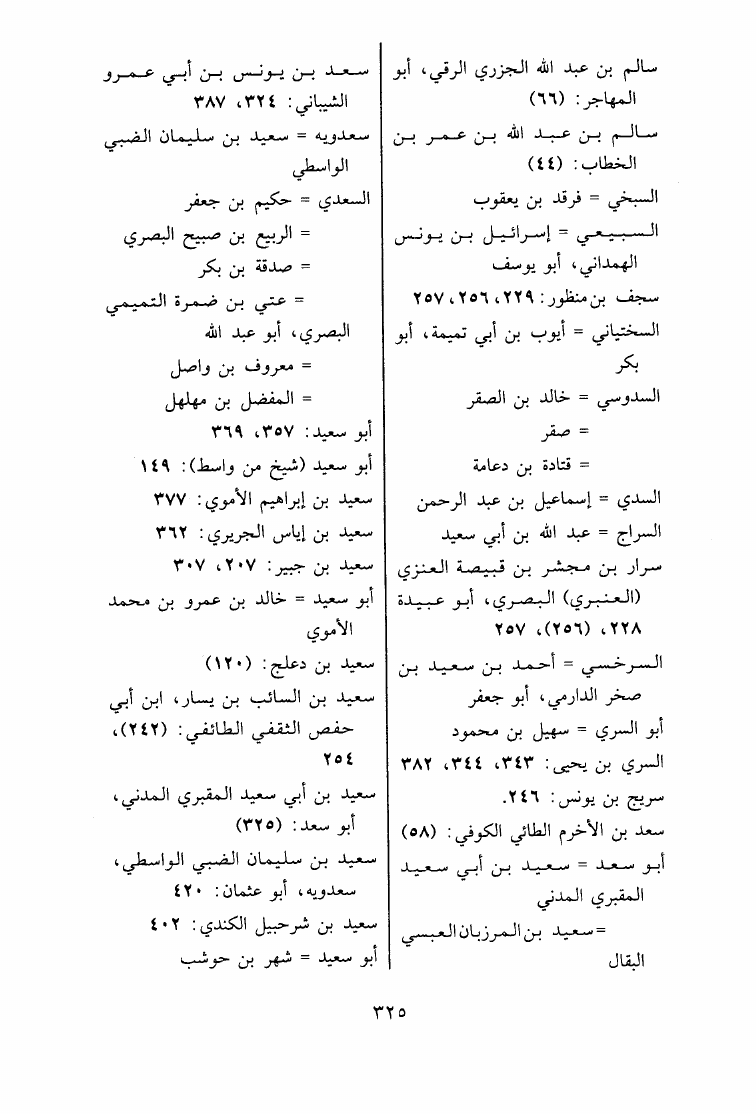 سالم بن عبد الله الجزري الرقي، أبو
المهاجر: (٦٦)
سالم بن عبد الله بن عمر بن
الخطاب: (٤٤)
السبخي = فرقد بن يعقوب
السبيعي = إسرائيل بن يونس
الهمداني، أبو يوسف
سجف بن منظور: ٢٢٩، ٢٥٦، ٢٥٧
السختياني = أيوب بن أبي تميمة، أبو
بكر
السدوسي = خالد بن الصقر
= صقر
= قتادة بن دعامة
السدي = إسماعيل بن عبد الرحمن
السراج = عبد الله بن أبي سعيد
سرار بن مجشر بن قبيصة العنزي
(العنبري) البصري، أبو عبيدة
٢٢٨، (٢٥٦)، ٢٥٧
السرخسي = أحمد بن سعيد بن
صخر الدارمي، أبو جعفر
أبو السري = سهيل بن محمود
السري بن يحيى: ٣٤٣، ٣٤٤، ٣٨٢
سريج بن يونس: ٢٤٦.
سعد بن الأخرم الطائي الكوفي: (٥٨)
أبو سعد = سعيد بن أبي سعيد
المقبري المدني
= سعيد بن المرزبان العبسي
البقال
سعد بن يونس بن أبي عمرو
الشيباني: ٣٢٤، ٣٨٧
سعدويه = سعيد بن سليمان الضبي
الواسطي
السعدي = حكيم بن جعفر
= الربيع بن صبيح البصري
= صدقة بن بكر
= عتي بن ضمرة التميمي
البصري، أبو عبد الله
= معروف بن واصل
= المفضل بن مهلهل
أبو سعيد: ٣٥٧، ٣٦٩
أبو سعيد (شيخ من واسط): ١٤٩
سعيد بن إبراهيم الأموي: ٣٧٧
سعيد بن إياس الجريري: ٣٦٢
سعيد بن جبير: ٢٠٧، ٣٠٧
أبو سعيد = خالد بن عمرو بن محمد
الأموي
سعيد بن دعلج: (١٢٠)
سعيد بن السائب بن يسار، ابن أبي
حفص الثقفي الطائفي: (٢٤٢)،
٢٥٤
سعيد بن أبي سعيد المقبري المدني،
أبو سعد: (٣٢٥)
سعيد بن سليمان الضبي الواسطي،
سعدويه، أبو عثمان: ٤٢٠
سعيد بن شرحبيل الكندي: ٤٠٢
أبو سعيد = شهر بن حوشب
٣٢٥